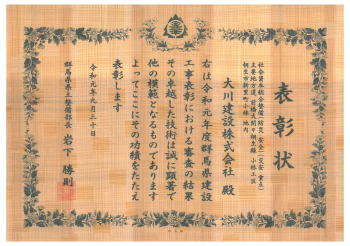 表彰状
社会資本総合整備(防災・安全)(交安・重点)
大川建設株式会社 殿
右は令和元年度群馬県建設
工事表彰における審査の結果
その卓越した技術は誠に顕著で
他の模範となるものであります
よってここにその功績をたたえ
表彰します
令和元年九月三十日
群馬県県土整備部長 岩下 勝則